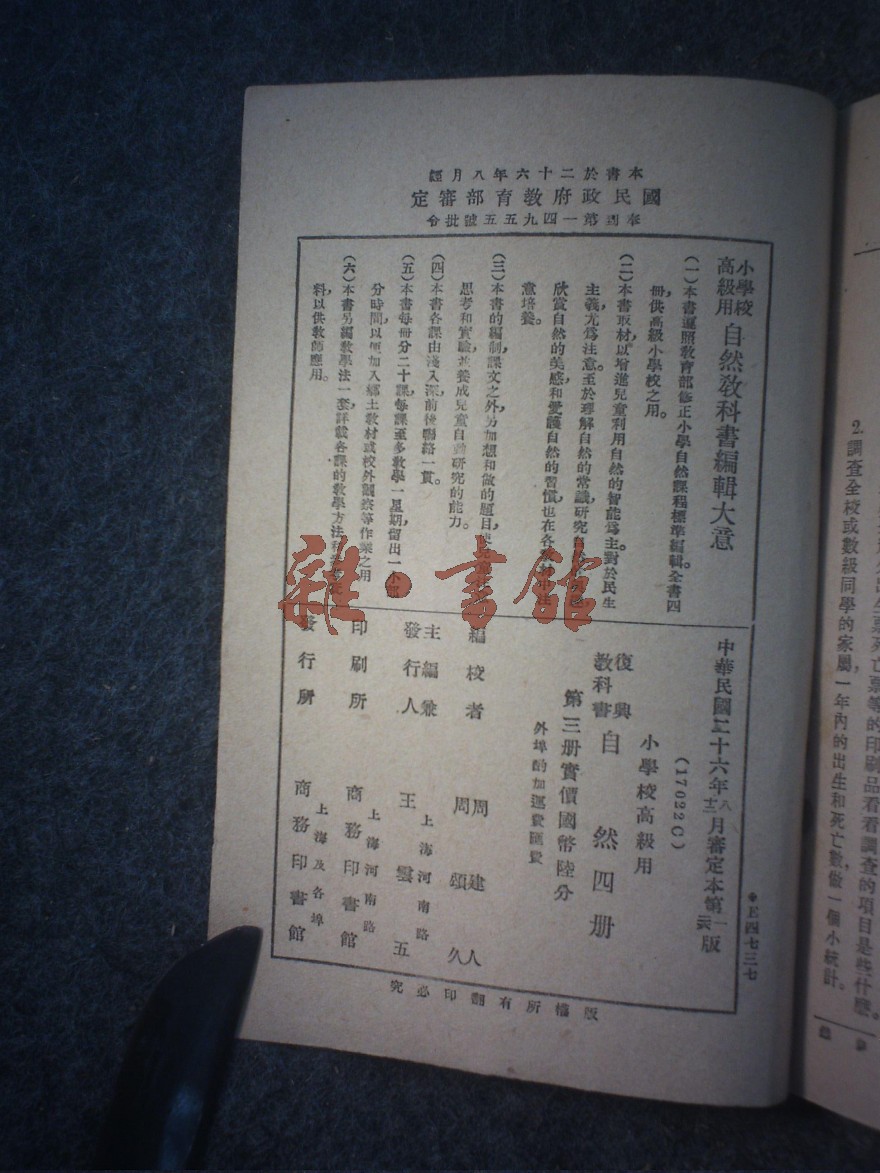 本書於二十六年八月經
國民政府教育部審定
第一四九五五號批令
小學校高級用 自然教科書編輯大意
(一)本書遵照教育部修正小學自然課程標準編輯,全書四
冊,供高級小學校之用。
(二)本書取材,以增進兒童利用自然的智能爲主,對於民生
主義尤爲注意。至於理解自然的常識,研究自
欣賞自然的美感,和愛護自然的習慣,也在各
意培養。
(三)本書的編制,課文之外,另加想和做的題目,
思考和實驗,並養成兒童自動研究的能力。
(四)本書各課由淺入深,前後聯絡一貫。
(五)本書每冊分二十課,每課至多教學一星期,留出一小部
分時間,以便加入鄉土教材或校外觀察等作業之用
(六)本書另編教學法一套,詳載各課的教學方法和
料,以供教師應用。
中華民國二十六年八月審定本第一版
(17022C)
小學校高級用
復興教科書 自然四册
第三册實價國幣陸分
外埠酌加運費匯費
編校者 周建人 周頌久
主編兼發行人 王雲五
上海河南路
印刷所 商務印書館
上海河南路
發行所 商務印書館
上海及各埠
版權所有翻印必究
E四七三七
雜·書館
票死亡票等的印刷品看看調查的項目是些什麼。
2. 調查全校或數級同學的家屬一年內的出生和死亡數,做一個小統計。